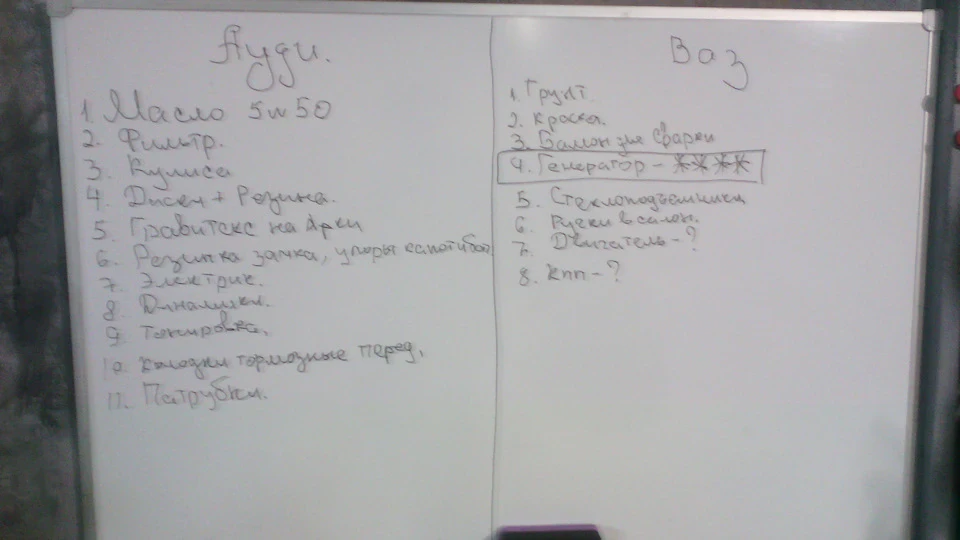 Ауди.
1. Масло 5w50
2. Фильтр.
3. Кулиса
4. Диски + Резина.
5. Гравитекс на Арки
6. Резинка замка, упоры капота
7. Электрик.
8. Динамики.
9. Тонировка,
10. Колодки тормозные перед,
11. Патрубки.
Ваз
1. Грунт.
2. Краска.
3. Балон для Сварки
4. Генератор - ****
5. Стеклоподъемники
6. Ручки в салон.
7. Двигатель - ?
8. кпп - ?